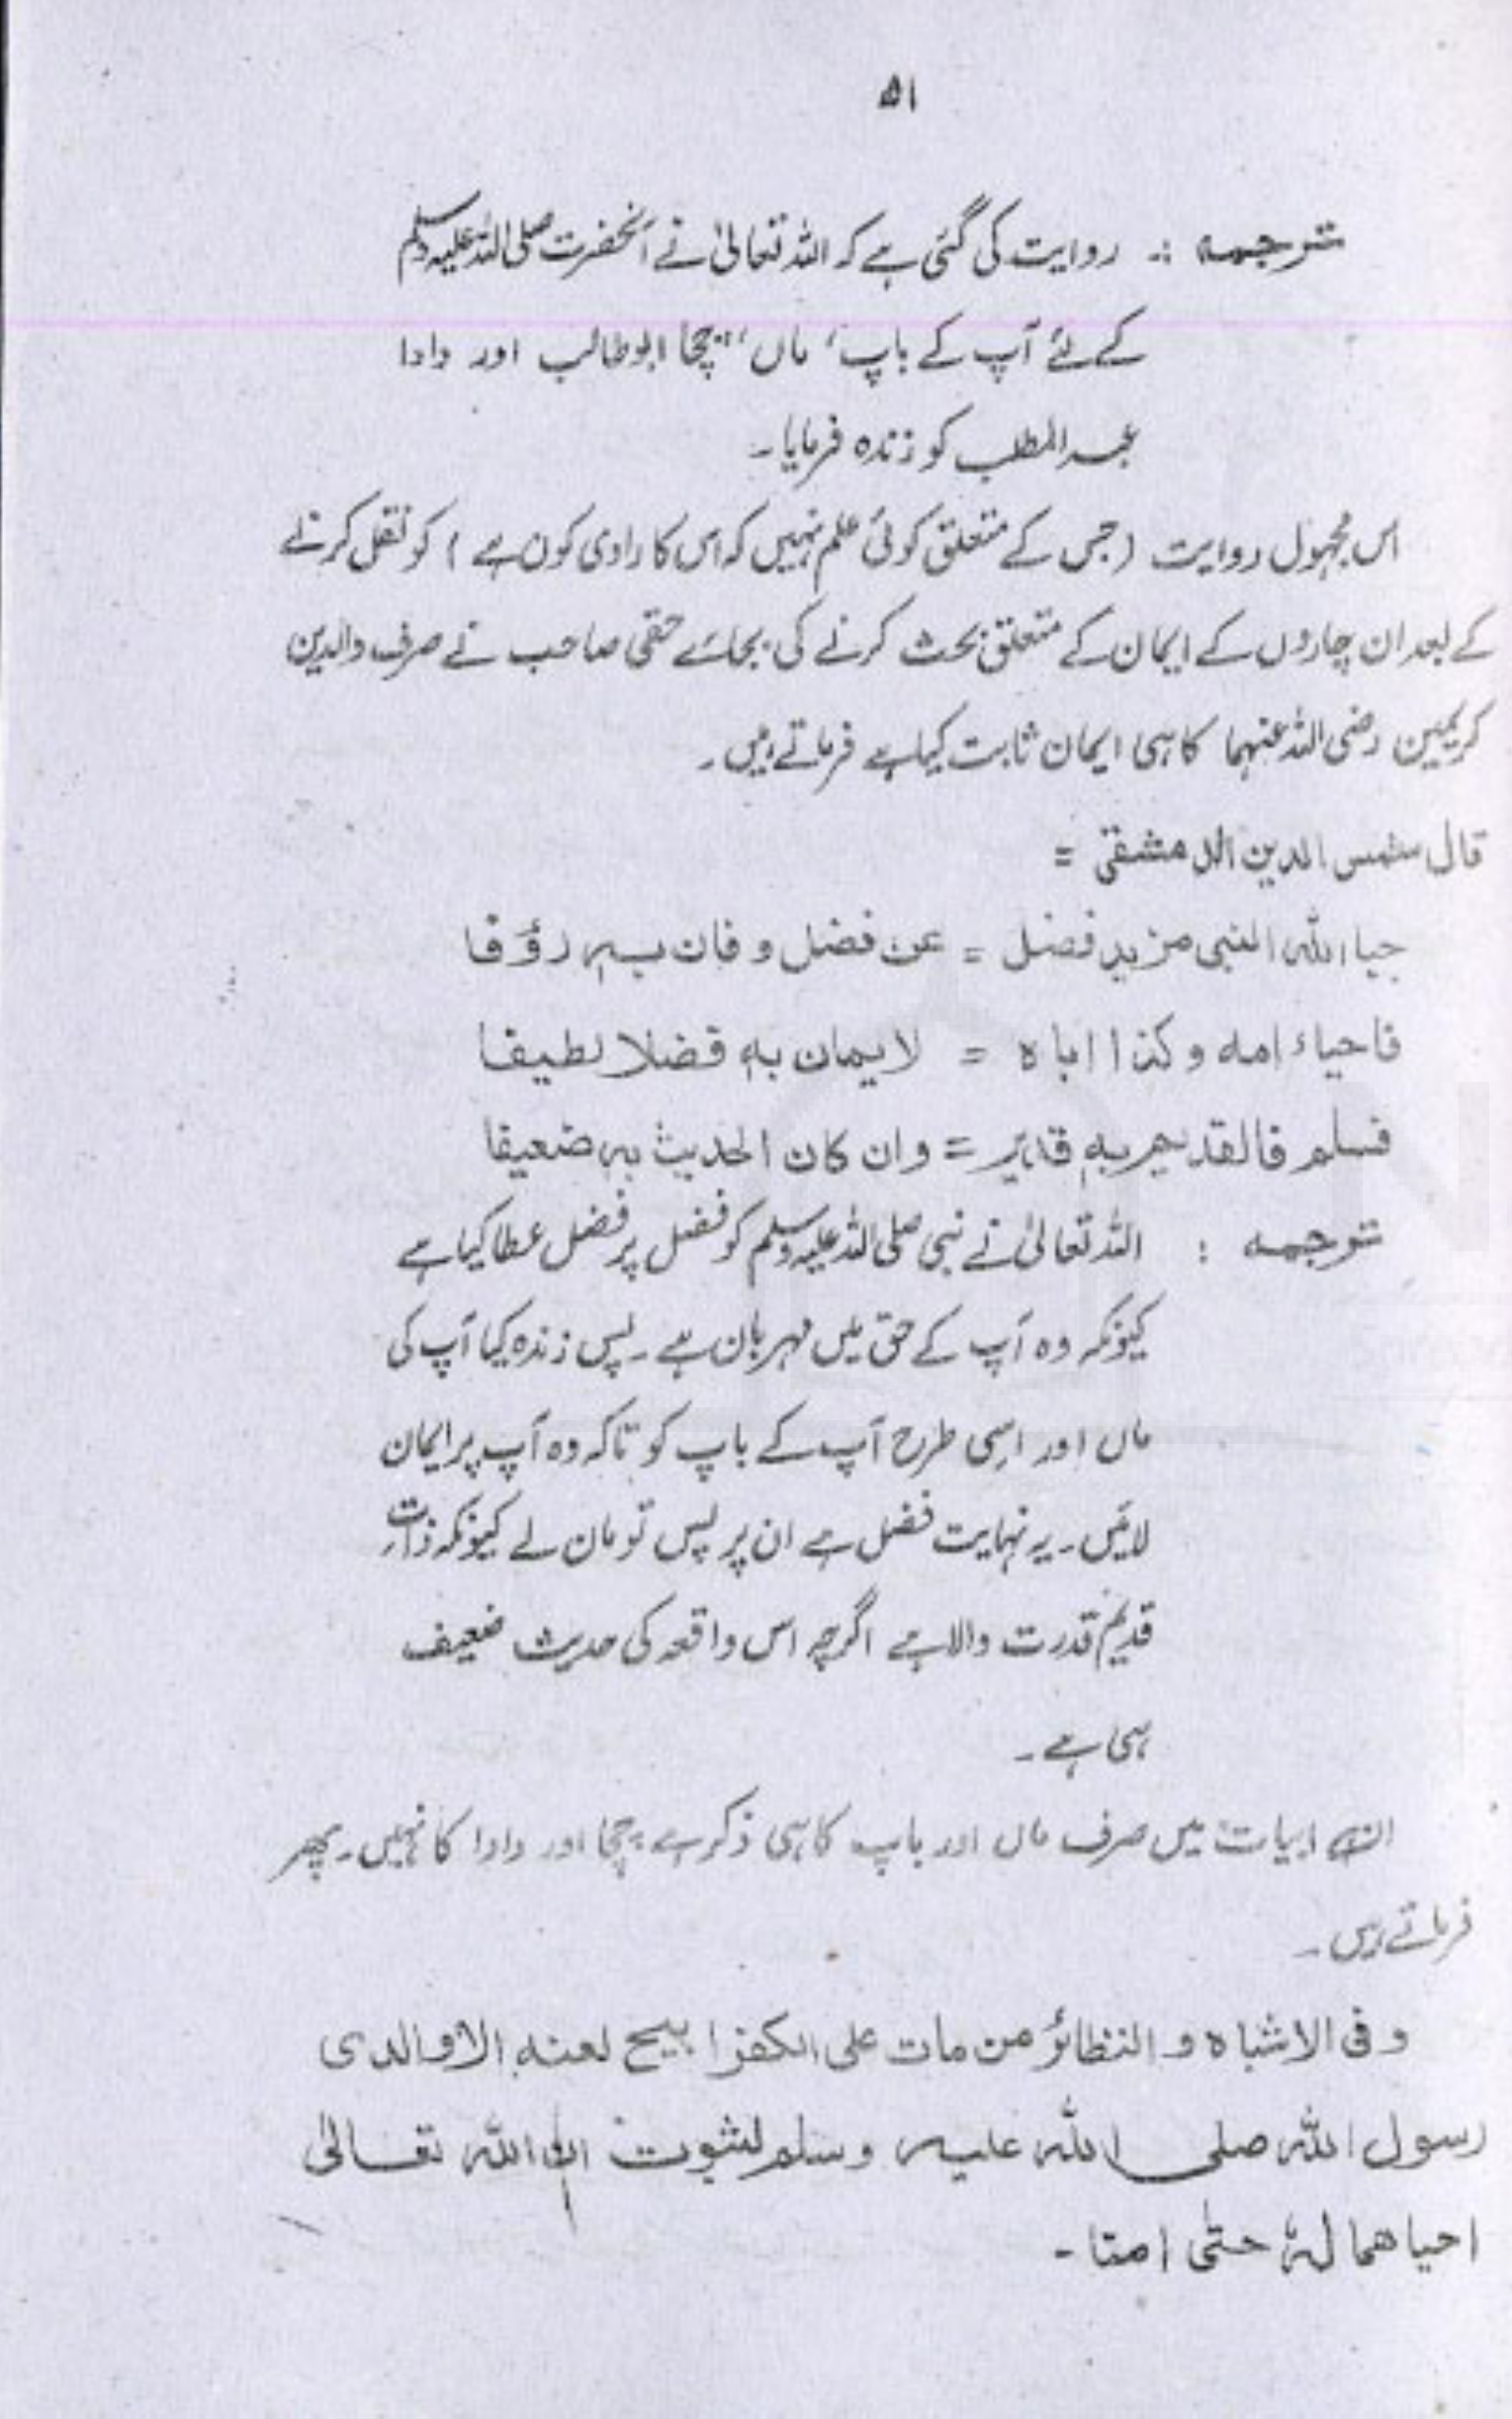 ۵۱
ترجمہ :۔ روایت کی گئی ہے کہ اللہ تعالیٰ نے آنحضرت صلی اللہ علیہ وسلم
کے لئے آپ کے باپ، ماں، چچا ابوطالب اور دادا
عبد المطلب کو زندہ فرمایا۔
اس مجہول روایت (جس کے متعلق کوئی علم نہیں کہ اس کا راوی کون ہے) کو نقل کرنے
کے بعد ان چاروں کے ایمان کے متعلق بحث کرنے کی بجائے حقی صاحب نے صرف والدین
کریمین رضی اللہ عنہما کا ہی ایمان ثابت کیا ہے فرماتے ہیں۔
قال شمس الدین الدمشقی =
حیا اللہ النبی مزید فضل = عن فضل و فان بہ رؤفا
فاحیاء امہ و کذا اباہ = لایمان بہ فضلا لطیفا
فسلم فالقدیم بہ قدیر = وان کان الحدیث بہ ضعیفا
ترجمہ : اللہ تعالیٰ نے نبی صلی اللہ علیہ وسلم کو فضل پر فضل عطا کیا ہے
کیونکہ وہ آپ کے حق میں مہربان ہے۔ پس زندہ کیا آپ کی
ماں اور اسی طرح آپ کے باپ کو تاکہ وہ آپ پر ایمان
لائیں۔ یہ نہایت فضل ہے ان پر پس تو مان لے کیونکہ ذات
قدیم قدرت والا ہے اگرچہ اس واقعہ کی حدیث ضعیف
ہی ہے۔
ان ابیات میں صرف ماں اور باپ کا ہی ذکر ہے چچا اور دادا کا نہیں۔ پھر
فرماتے ہیں۔
و فی الاشباہ و النظائر من مات علی الکفر ابیح لعنہ الا والدی
رسول اللہ صلی اللہ علیہ وسلم لثبوت ان اللہ تعالیٰ
احیاھما لہٗ حتٰی امنا۔